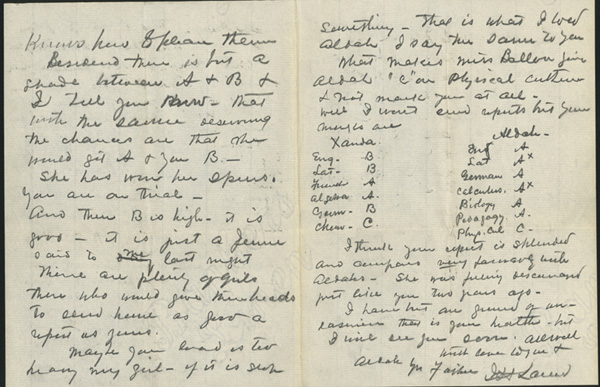 Knows how to please them
Besides there is but a
shade between A + B +
I tell you now - that
with the same deserving
the chances are that she
would get A + you B. -
She has won her spurs.
You are on trial -
And then B is high - it is
good - it is just a
said to me last night
There are plenty of girls
there who would give their heads
to send home as good a
report as yours.
Maybe your load is too
heavy my girl - if it is drop
something - That is what I told
Aldah I say the same to you
What makes Miss Ballou give
Aldah "C" on Physical culture
+ not mark you at all -
Well I won't send reports but your
marks are
Xanda. Aldah -
Eng - B Eng A
Lat - B Lat A x
French A German A
Algebra A Calculus. A x
Germ - B Biology A
Chem - C. Pedagogy A.
Physical C -
I think your report is splendid
and compares very favorably with
Aldahs - She was feeling discouraged
just like you two years ago -
I have but one ground of un-
easiness that is your health - but
I will see you soon. All well
with love to you +
Aldah Yr Father